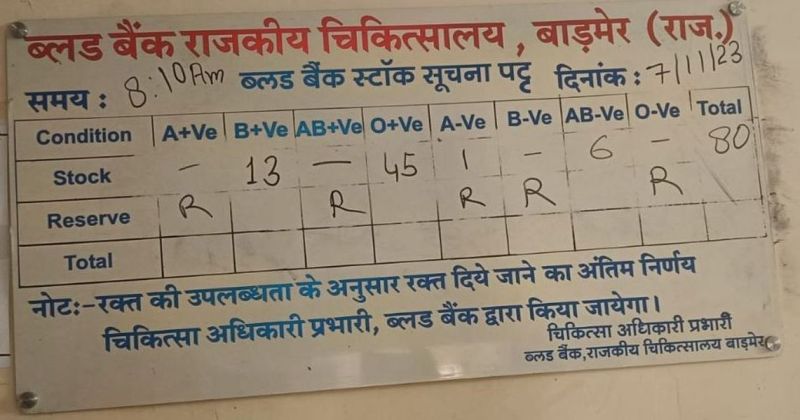 ब्लड बैंक राजकीय चिकित्सालय, बाड़मेर (राज.)
समय : 8:10Am ब्लड बैंक स्टॉक सूचना पट्ट दिनांक : 7/11/23
Condition A+Ve B+Ve AB+Ve O+Ve A-Ve B-Ve AB-Ve O-Ve Total
Stock - 13 - 45 1 - 6 - 80
Reserve R R R R R
Total
नोटः-रक्त की उपलब्धता के अनुसार रक्त दिये जाने का अंतिम निर्णय
चिकित्सा अधिकारी प्रभारी, ब्लड बैंक द्वारा किया जायेगा।
चिकित्सा अधिकारी प्रभारी
ब्लड बैंक,राजकीय चिकित्सालय बाड़मेर